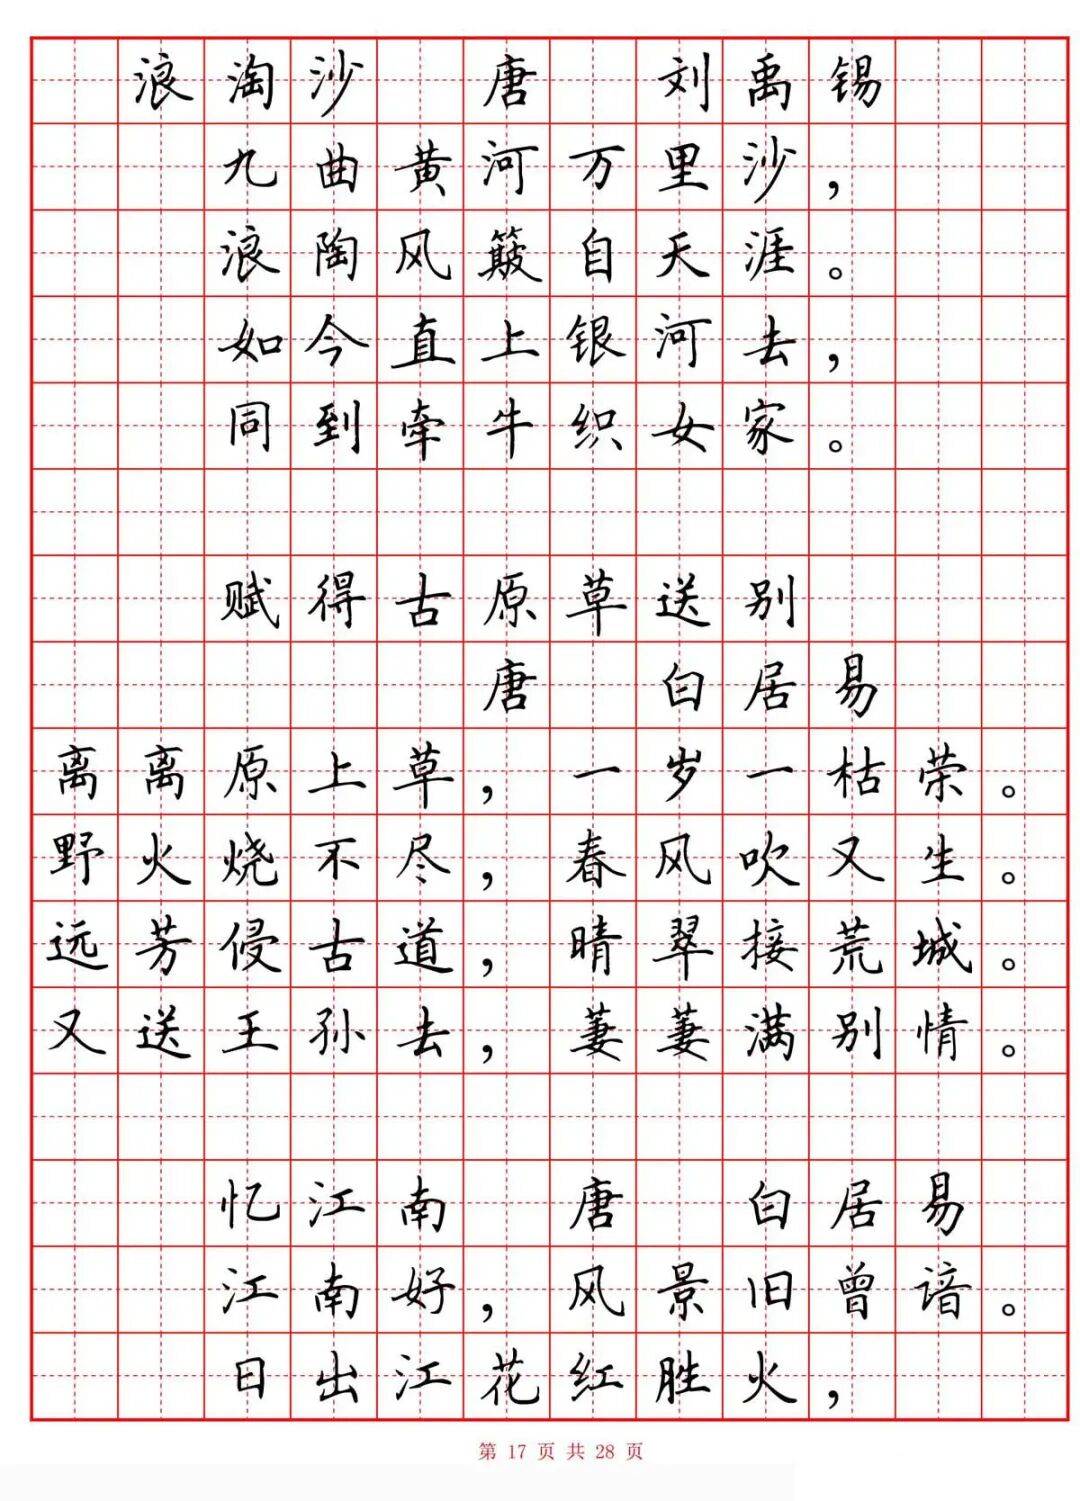 浪淘沙 唐 刘禹锡
九曲黄河万里沙，
浪陶风簸自天涯。
如今直上银河去，
同到牵牛织女家。
赋得古原草送别
唐 白居易
离离原上草，一岁一枯荣。
野火烧不尽，春风吹又生。
远芳侵古道，晴翠接荒城。
又送王孙去，萋萋满别情。
忆江南 唐 白居易
江南好，风景旧曾谙。
日出江花红胜火，
第 17 页 共 28 页